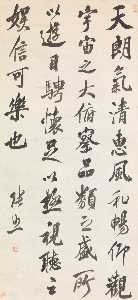 天朗氣清惠風和暢仰觀
宇宙之大俯察品類之盛所
以遊目騁懷足以極視聽之
娛信可樂也 張照